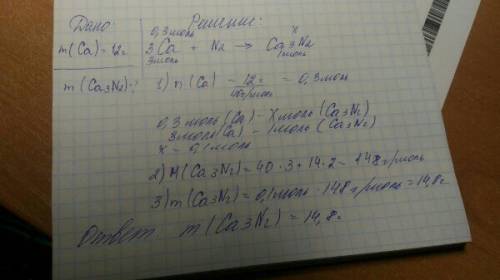 Дано:
Решение:
m(Ca) = 12г
0,3моль x
3Ca + N2 → Ca3N2
3моль 1моль
m(Ca3N2)-?
1) n(Ca) - 12г / 40г/моль = 0,3моль
0,3моль(Ca) - xмоль(Ca3N2)
3моль(Ca) - 1моль(Ca3N2)
x = 0,1моль
2) M(Ca3N2) = 40·3 + 14·2 = 148г/моль
3) m(Ca3N2) = 0,1моль · 148г/моль = 14,8г
Ответ m(Ca3N2) = 14,8г